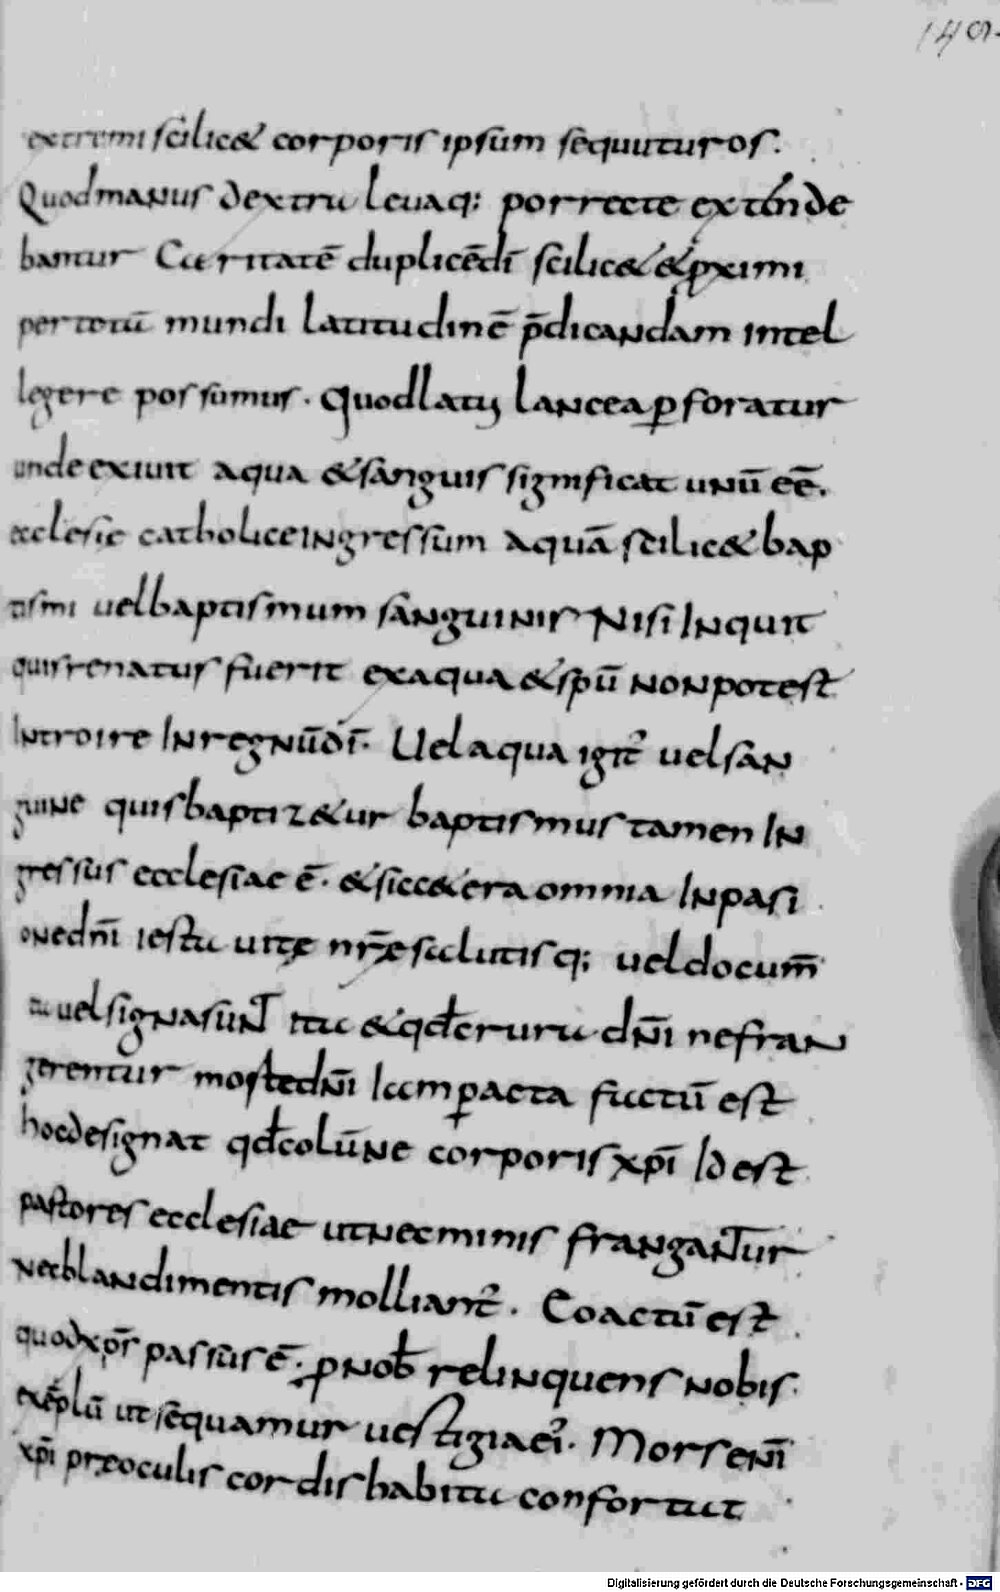 149.
extremi scilic& corporis ipsum sequuturos.
Quod manus dextra leuaq; porrecte extende
bantur Caritatē duplicē dī scilic& & pximi
per totū mundi latitudinē p̄dicandam intel
legere possumus. quod latus lancea pforatur
unde exiuit aqua & sanguis significat unū eē.
ecclesie catholice ingressum aquā scilic& bap
tismi uel baptismum sanguinis Nisi inquit
quis renatus fuerit ex aqua & spū non potest
Introire In regnū dī. Uel aqua igit uel san
guine quis baptiz&ur baptismus tamen In
gressus ecclesiae ē. & sic c&era omnia In pasi
one dn̄i iesu uitę nr̄e salutisq; uel docum̄
ta uel signa sunt ita & qd crura dn̄i ne fran
gerentur moste dn̄i lam pacta factū est
hoc designat qd colūne corporis xp̄i Id est
pastores ecclesiae ut nec minis frangantur
nec blandimentis molliant. Coactū est
quod xp̄s passus ē. p nob relinquens nobis
exēplū ut sequamur uestigia ei'. Mors enī
xp̄i pre oculis cordis habita confortat
Digitalisierung gefördert durch die Deutsche Forschungsgemeinschaft - DFG